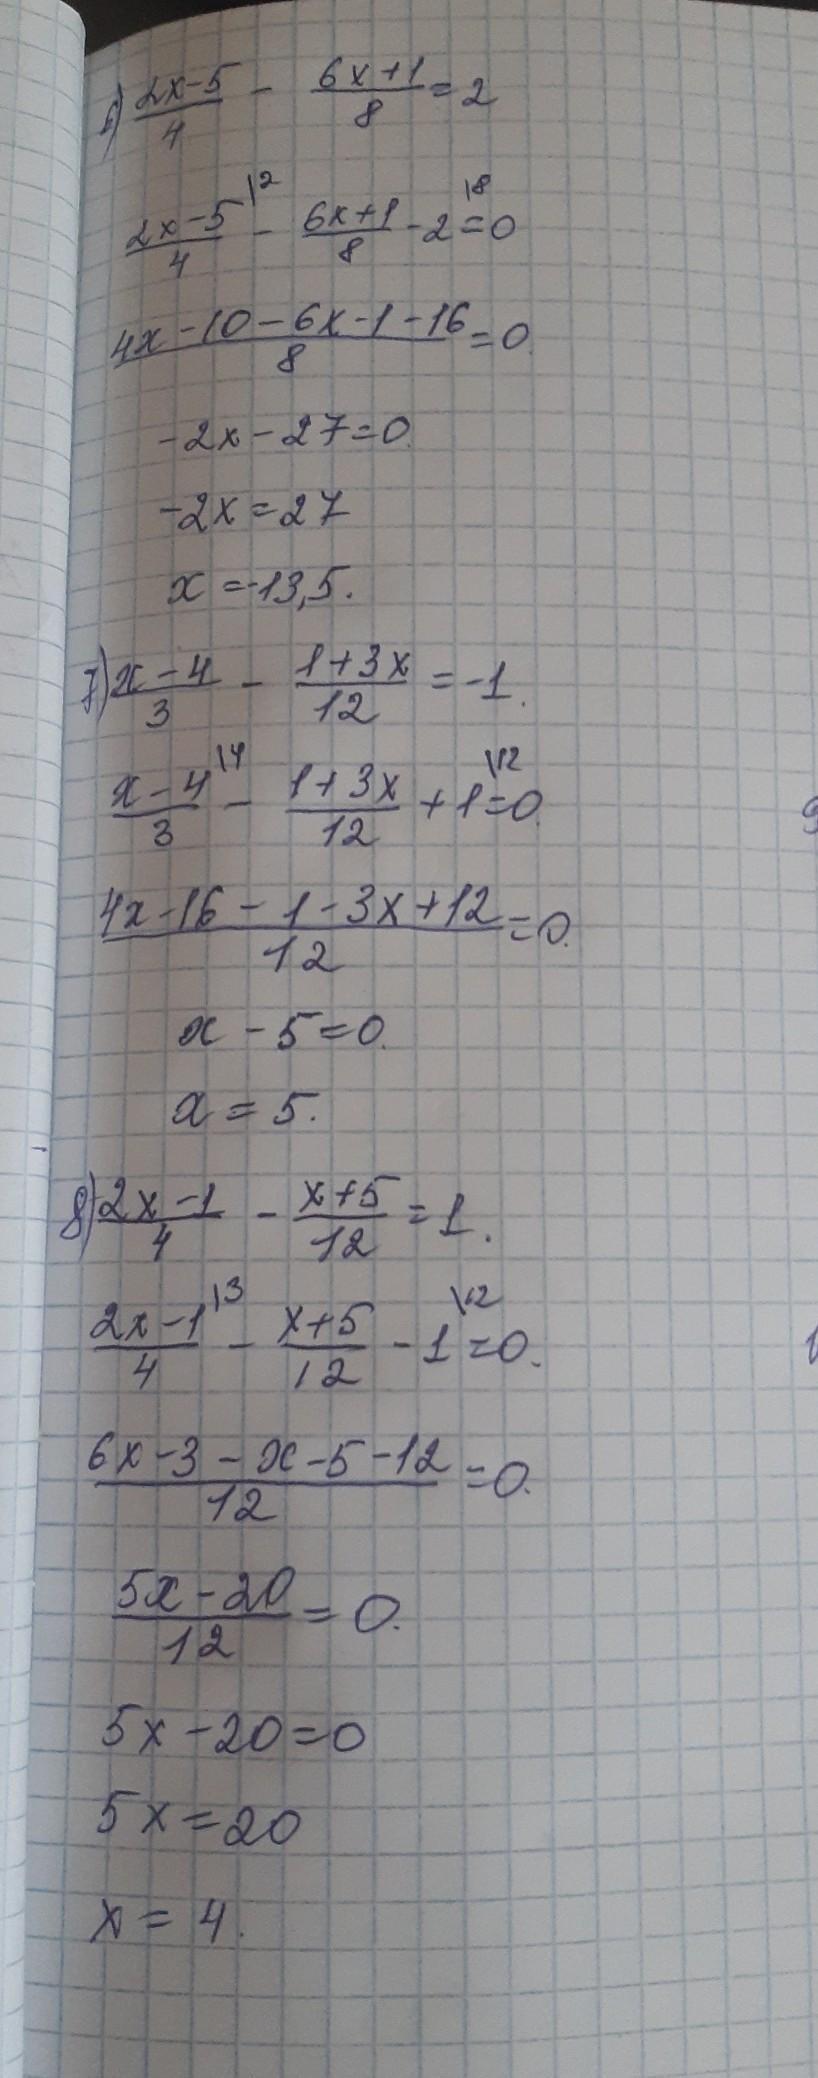 6) (2x-5)/4 - (6x+1)/8 = 2
(2x-5)/4 \2 - (6x+1)/8 - 2 \8 = 0
(4x-10-6x-1-16)/8 = 0.
-2x-27=0.
-2x=27
x=-13,5.
7) (x-4)/3 - (1+3x)/12 = -1.
(x-4)/3 \4 - (1+3x)/12 + 1 \12 = 0.
(4x-16-1-3x+12)/12 = 0.
x-5=0.
x=5.
8) (2x-1)/4 - (x+5)/12 = 1.
(2x-1)/4 \3 - (x+5)/12 - 1 \12 = 0.
(6x-3-x-5-12)/12 = 0.
(5x-20)/12 = 0.
5x-20=0
5x=20
x=4.